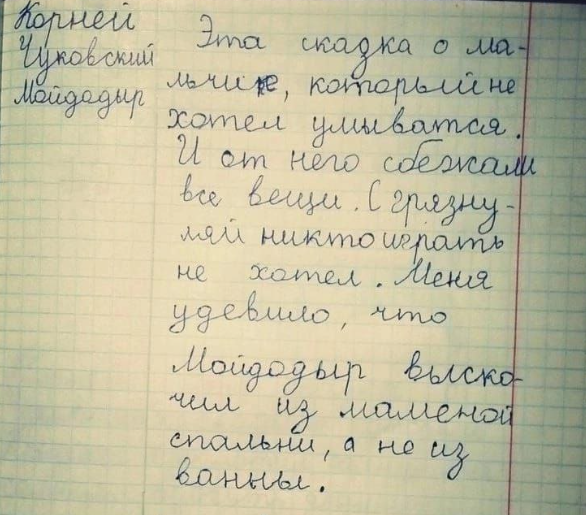 Корней
Чуковский
Мойдодыр
Эта сказка о ма-
льчике, который не
хотел умыватся.
И от него сбежали
все вещи. С грязну-
ляй никто играть
не хотел. Меня
удевило, что
Мойдодыр выско-
чил из маменой
спальни, а не из
ванны.